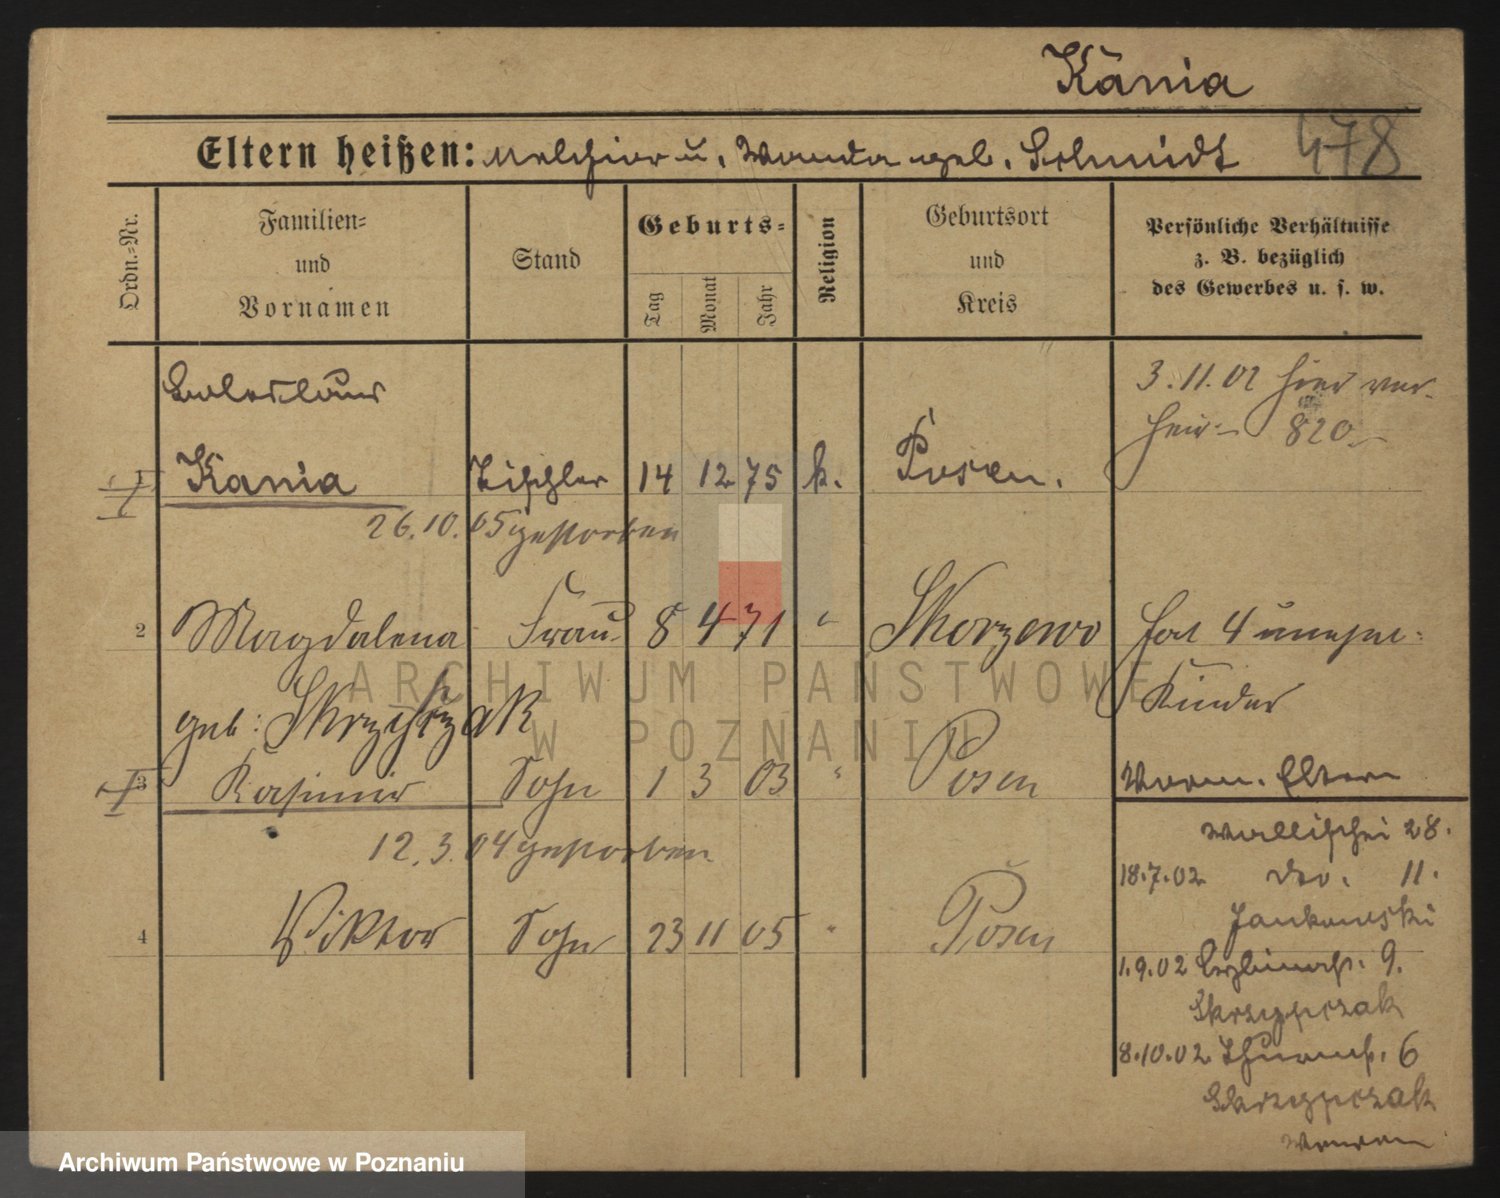 Kania
478
Eltern heißen: Melchior u. Wanda geb. Schmidt
Ordn.=Nr.
Familien= und Vornamen
Stand
Geburts=
Tag
Monat
Jahr
Religion
Geburtsort und Kreis
Persönliche Verhältnisse
z. B. bezüglich
des Gewerbes u. s. w.
Boleslaus
3.11.02 hier ver-
heir- 820
1 Kania Tischler 14 12 75 k. Posen.
26.10.05 gestorben
2 Magdalena Frau 8 4 71 " Skorzewo
hat 4 unehel:
Kinder
geb: Skrzypczak
3 Kasimir Sohn 1 3 03 " Posen
Worm. Eltern
12.3.04 gestorben
Wallischei 28.
18.7.02 do. 11.
Jankowski
4 Viktor Sohn 23 11 05 " Posen
1.9.02 9.
Skrzypczak
8.10.02 Thurmstr. 6
Skrzypczak
ARCHIWUM PAŃSTWOWE
W POZNANIU
Archiwum Państwowe w Poznaniu